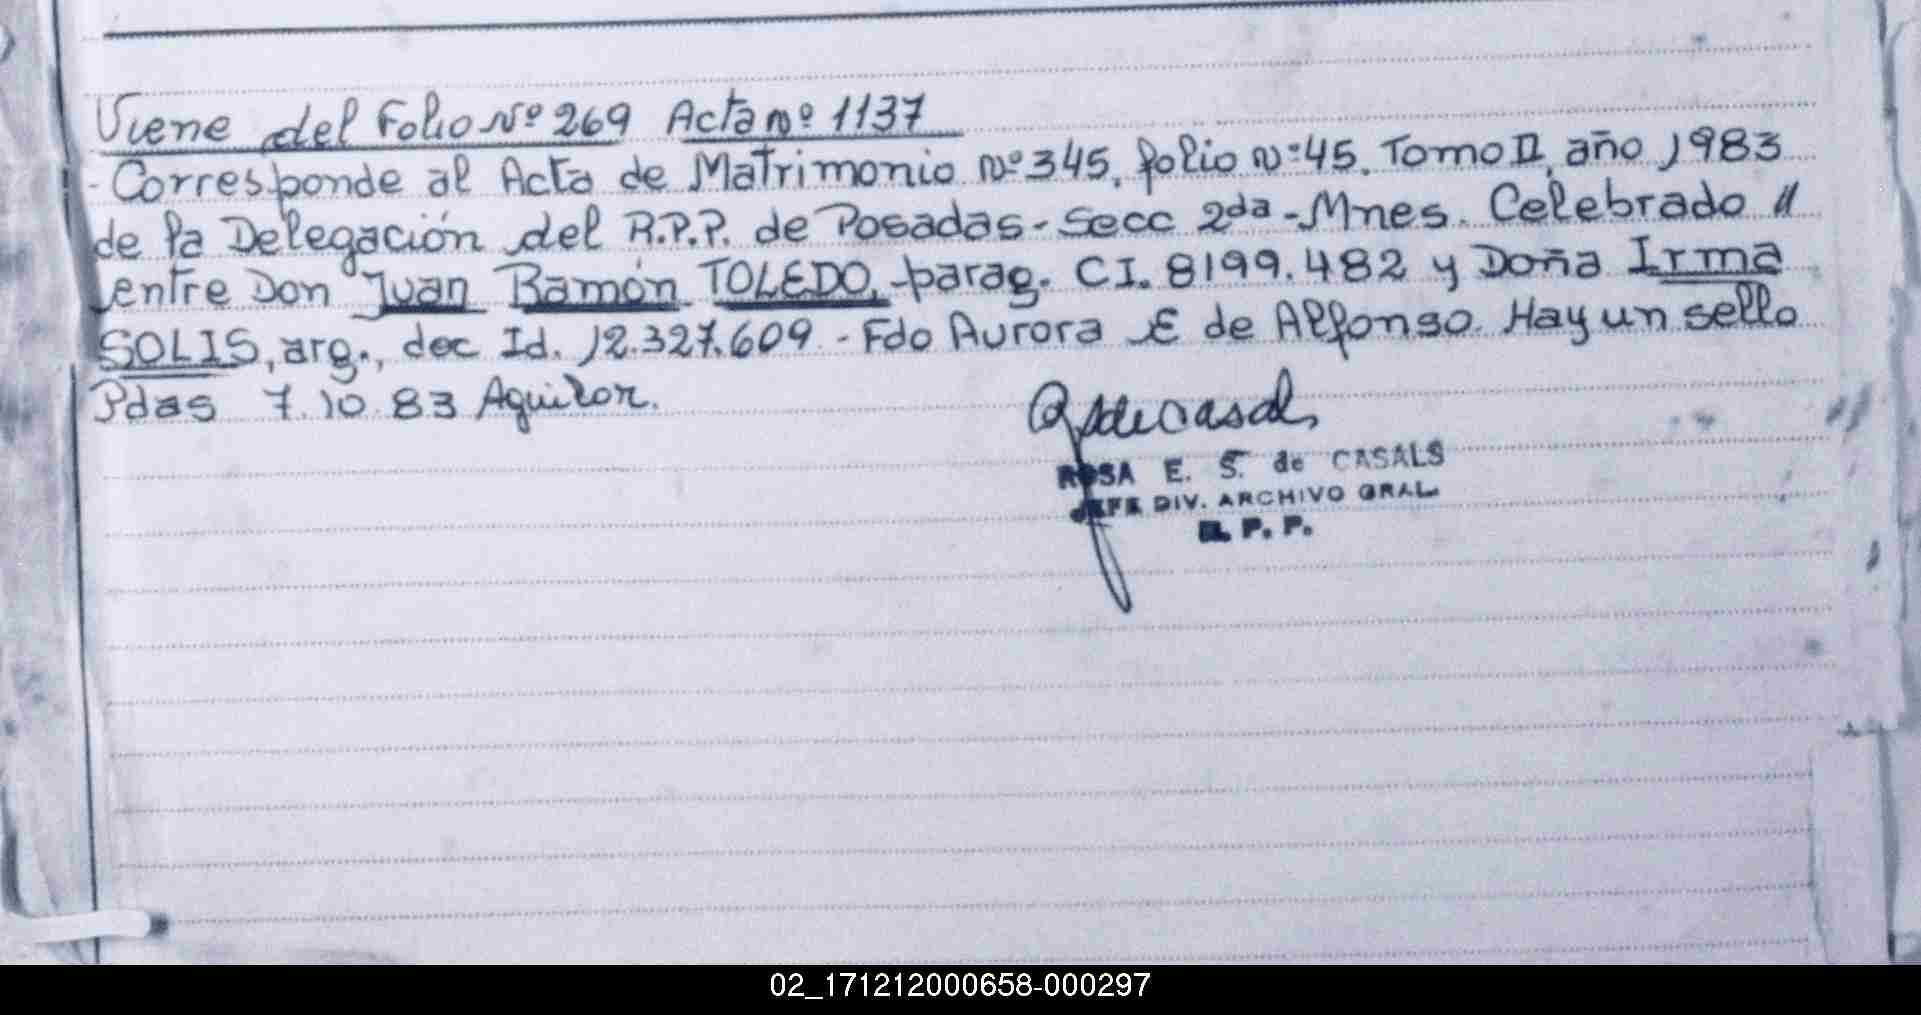 Viene del Folio Nº 269 Acta nº 1137
- Corresponde al Acta de Matrimonio Nº 345, folio Nº 45, Tomo II, año 1983
de la Delegación del R.P.P. de Posadas - Secc 2da - Mnes. Celebrado "
entre Don Juan Ramón TOLEDO, parag. CI. 8199.482 y Doña Irma
SOLIS, arg., doc Id. 12.327.609 - Fdo Aurora E de Alfonso. Hay un sello
Pdas 7.10.83 Aguilar.
ROSA E. S. de CASALS
JEFE DIV. ARCHIVO GRAL.
R. P. P.
02_171212000658-000297